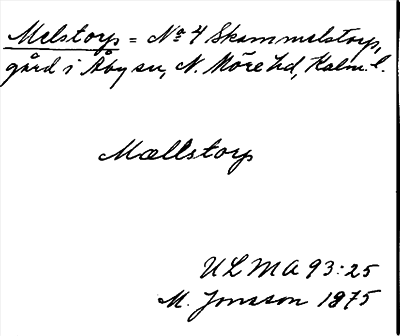 Melstorp = No 4 Skammelstorp,
gård i Åby sn, N. Möre hd, Kalm. l.
Mællstorp
ULMA 93:25
M. Jonsson 1875